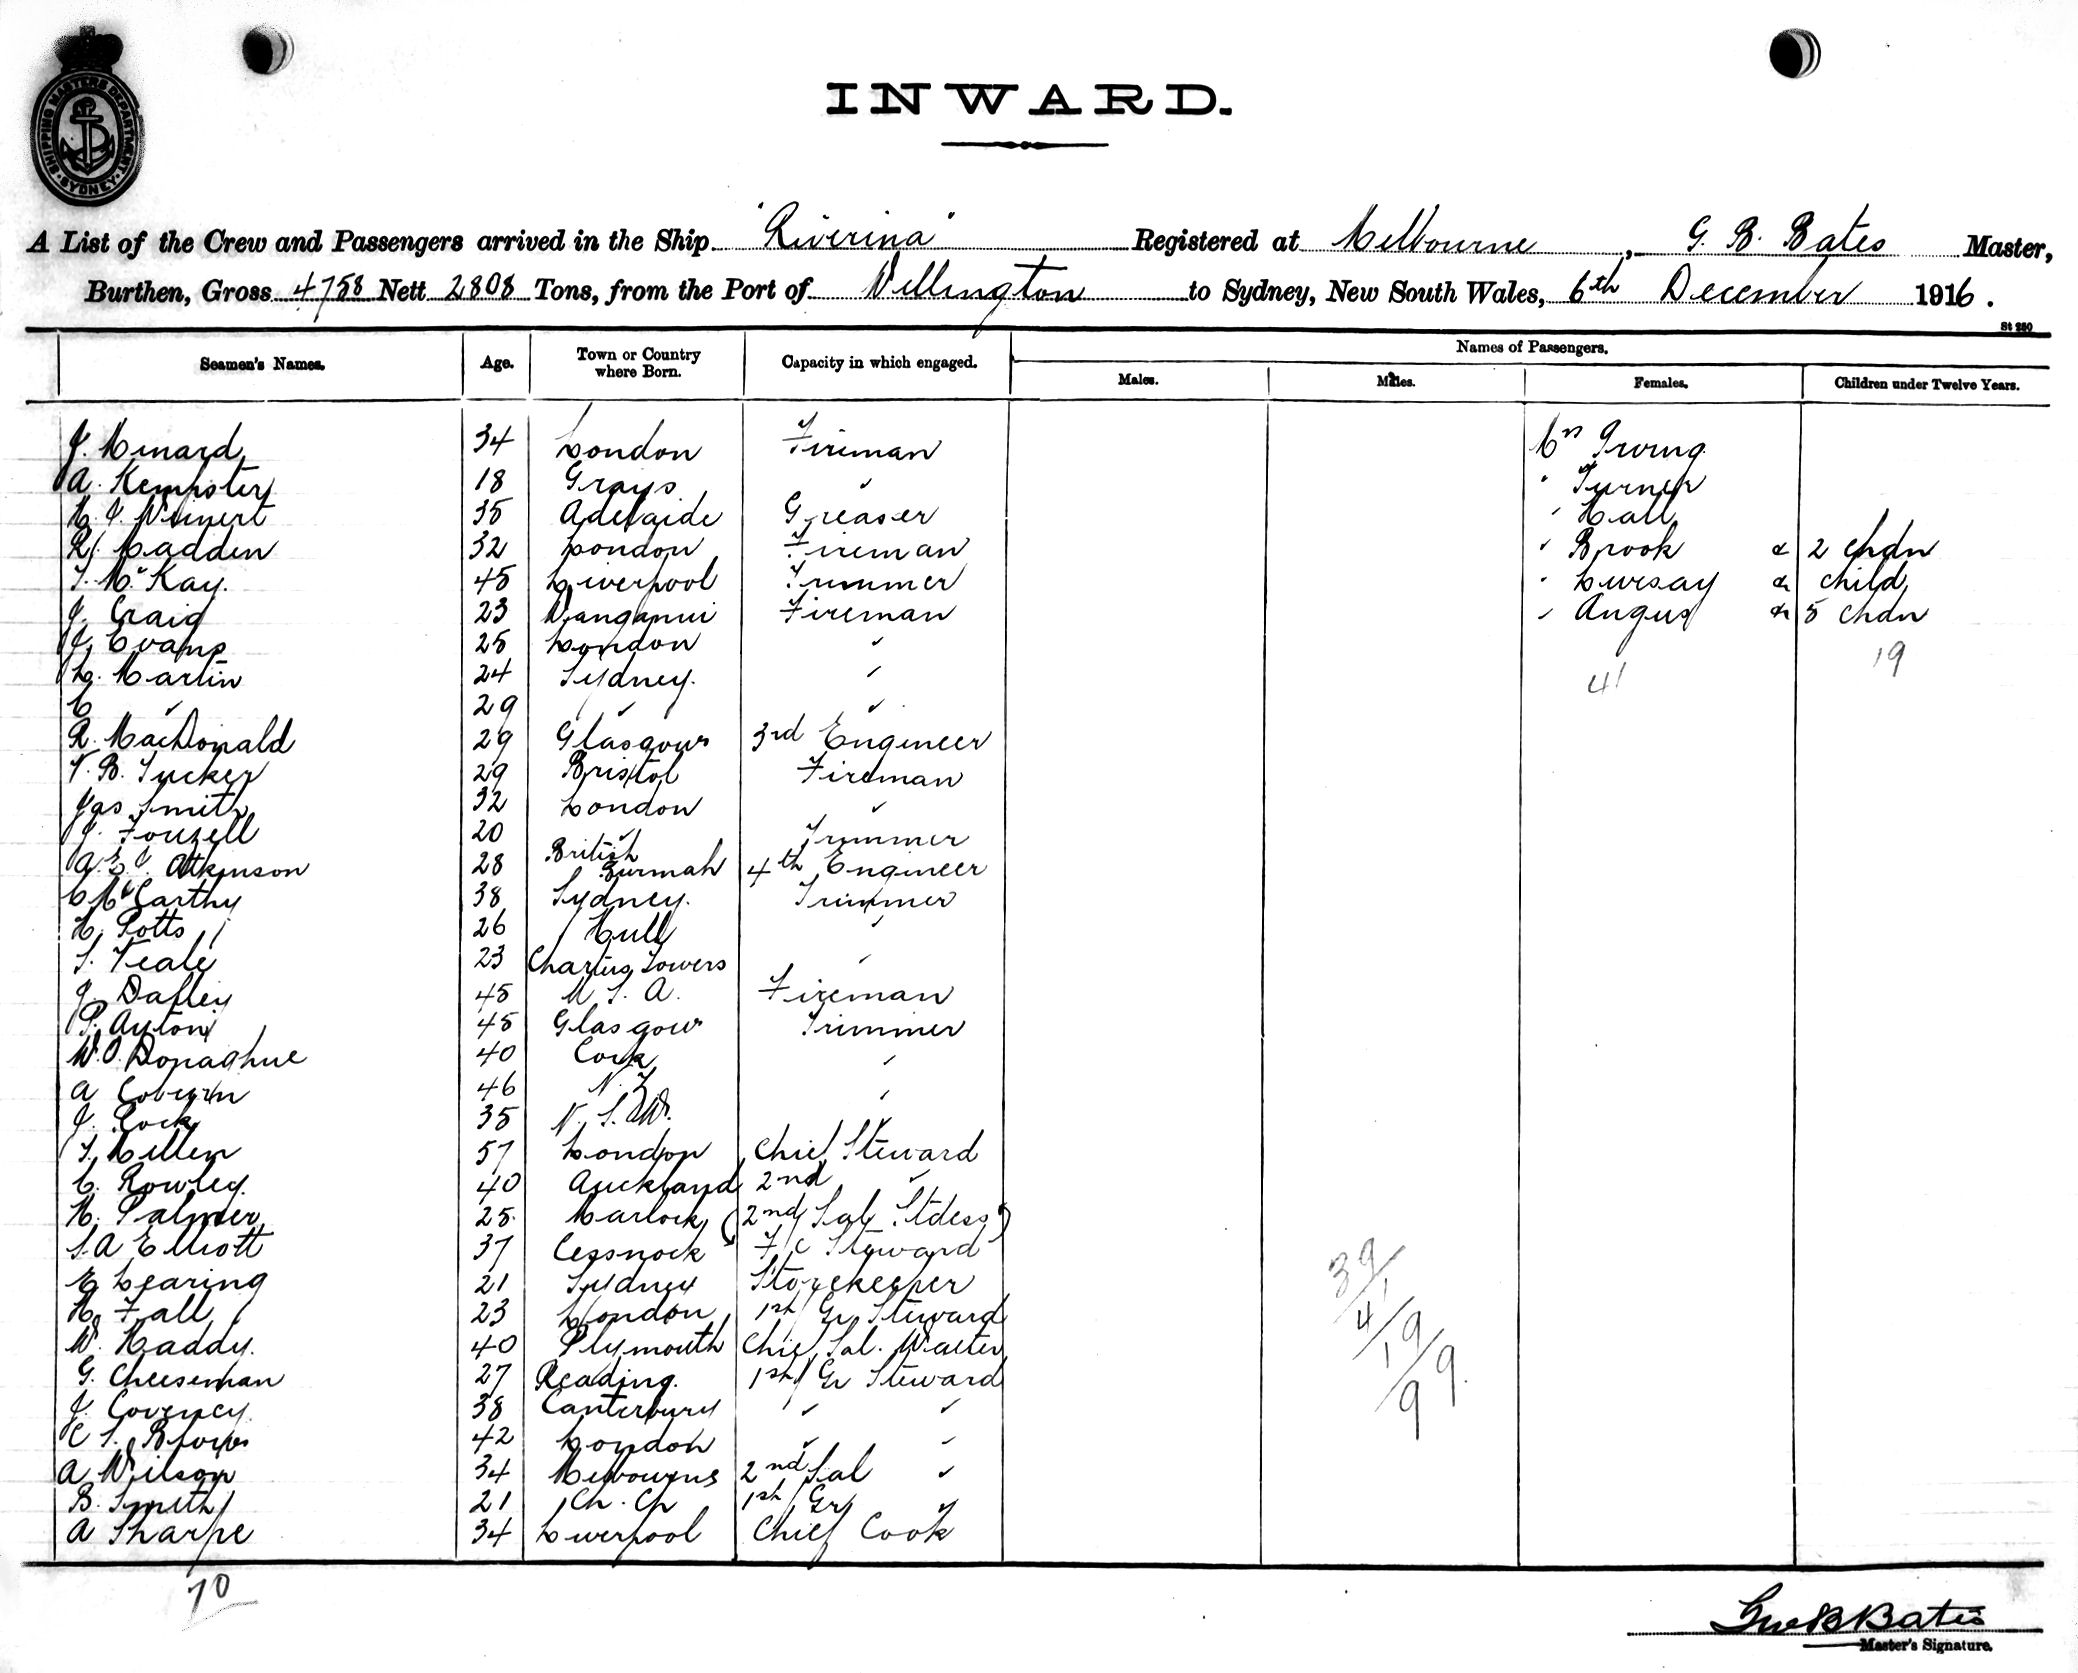 SHIPPING MASTERS DEPARTMENT · SYDNEY ·
INWARD.
A List of the Crew and Passengers arrived in the Ship "Riverina" Registered at Melbourne, G. B. Bates Master,
Burthen, Gross 4758 Nett 2808 Tons, from the Port of Wellington to Sydney, New South Wales, 6th December 1916.
St 280
Seamen's Names. Age. Town or Country where Born. Capacity in which engaged. Names of Passengers.
Males. Males. Females. Children under Twelve Years.
J. Minard 34 London Fireman Mrs Irving
A. Kempster 18 Grays " " Turner
H. J. 35 Adelaide Greaser " Hall
R. Madden 32 London Fireman " Brook & 2 chdn
T. McKay. 45 Liverpool Trimmer " Livesay & child
J. Craig 23 Wanganui Fireman " Angus & 5 chdn
J. Evans 25 London " 19
L. Martin 24 Sydney. " 41
C " 29 " "
R. MacDonald 29 Glasgow 3rd Engineer
V. B. Tucker 29 Bristol Fireman
Jas Smith 32 London "
J. 20 " Trimmer
A. E. J. Atkinson 28 British Burmah 4th Engineer
C McCarthy 38 Sydney. Trimmer
H. Potts 26 Hull "
S. Veale 23 Charters Towers "
J. Dafley 45 U. S. A. Fireman
P. Ayton 45 Glasgow Trimmer
W. O. Donaghue 40 Cork "
A 46 N. Z "
J. Cock 35 N. S. W. "
T. Millen 57 London Chief Steward
C. Rowley. 40 Auckland 2nd "
H. Palmer 25. Matlock (2nd Sal Stdess)
S. A Elliott 37 Cessnock F C Steward
E Learing 21 Sydney Storekeeper
H. Fall 23 London 1st Gr Steward
W. Haddy. 40 Plymouth Chief Sal. Waiter
G. Cheeseman 27 Reading. 1st Gr Steward
J. Coveney. 38 Canterbury " "
C S. 42 London " "
A Wilson 34 Melbourne 2nd Sal "
B. Smith 21 Ch. Ch 1st Gr "
A Sharpe 34 Liverpool Chief Cook
39
41
19
99.
70
Geo B Bates
Master's Signature.